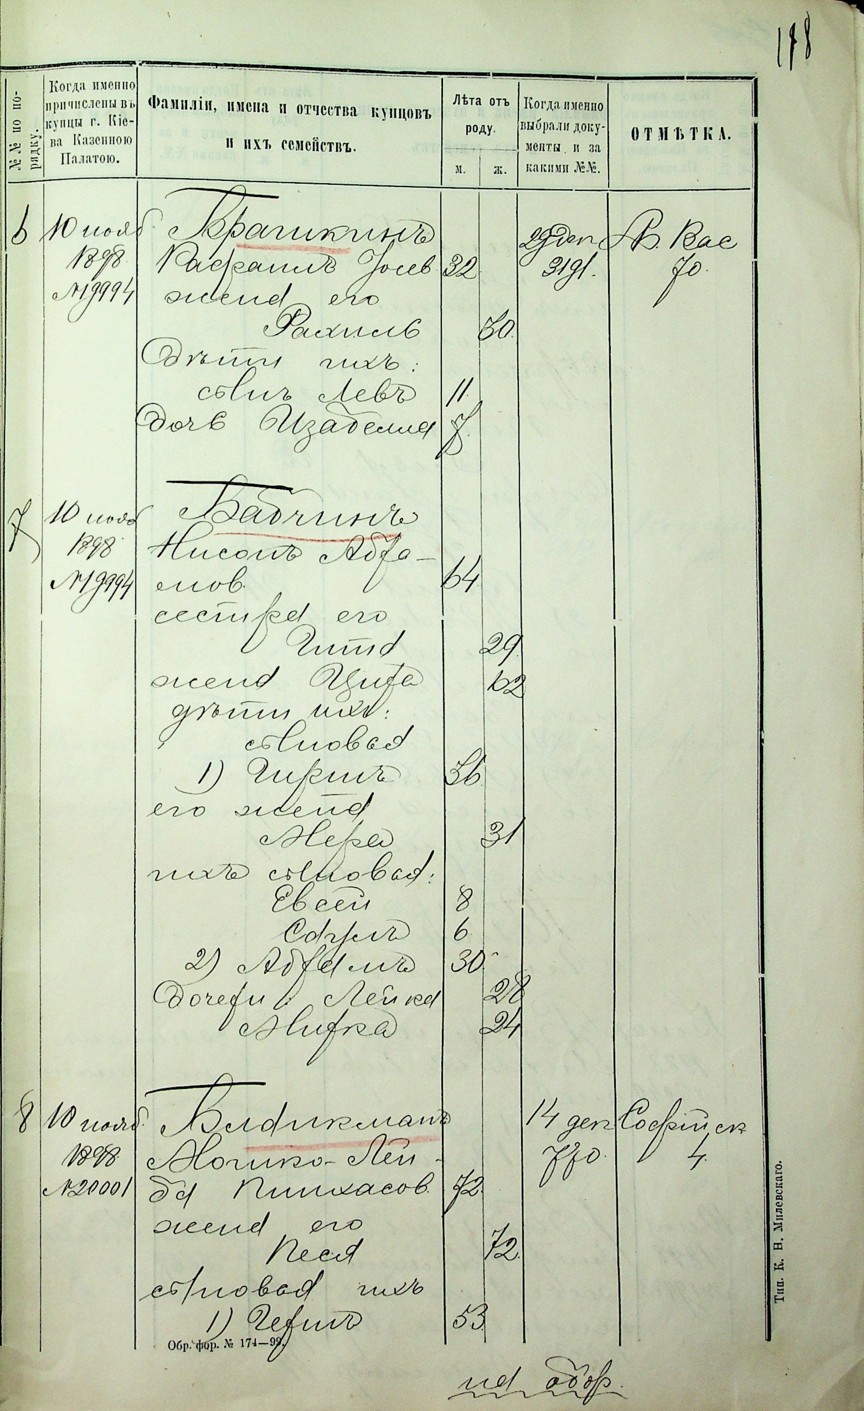 178
№№ по по-
рядку.
Когда именно
причислены въ
купцы г. Кіе-
ва Казенною
Палатою.
Фамиліи, имена и отчества купцовъ
и ихъ семействъ.
Лѣта отъ
роду.
м. ж.
Когда именно
выбрали доку-
менты и за
какими №№.
ОТМѢТКА.
6 10 нояб Брагинкинъ 29 дек Б Вас
1898 Рафаилъ Іосев 32 70
№19994 жена его
Рахиль 30
Дѣти ихъ:
сынъ Левъ 11
Дочь Изабелла 7
7 10 нояб Бабчинъ
1898 Нисонъ Абра-
№19994 мовъ 64
сестра его
Гита 29
жена Цира 62
дѣти ихъ:
сыновья
1) Гиршъ 36
его жена
Мера 31
ихъ сыновья:
Евсей 8
Саулъ 6
2) Абрамъ 30
Дочери: Лейка 28
Мирка 24
8 10 нояб. 14 дек Софійск
1898 Мошко-Лей- 770 4
№20001 ба Пинхасов 72
жена его
Песя 72
сыновья ихъ
1) Гершъ 53
Обр. фор. № 174—99.
на обор.
Тип. К. Н. Милевскаго.